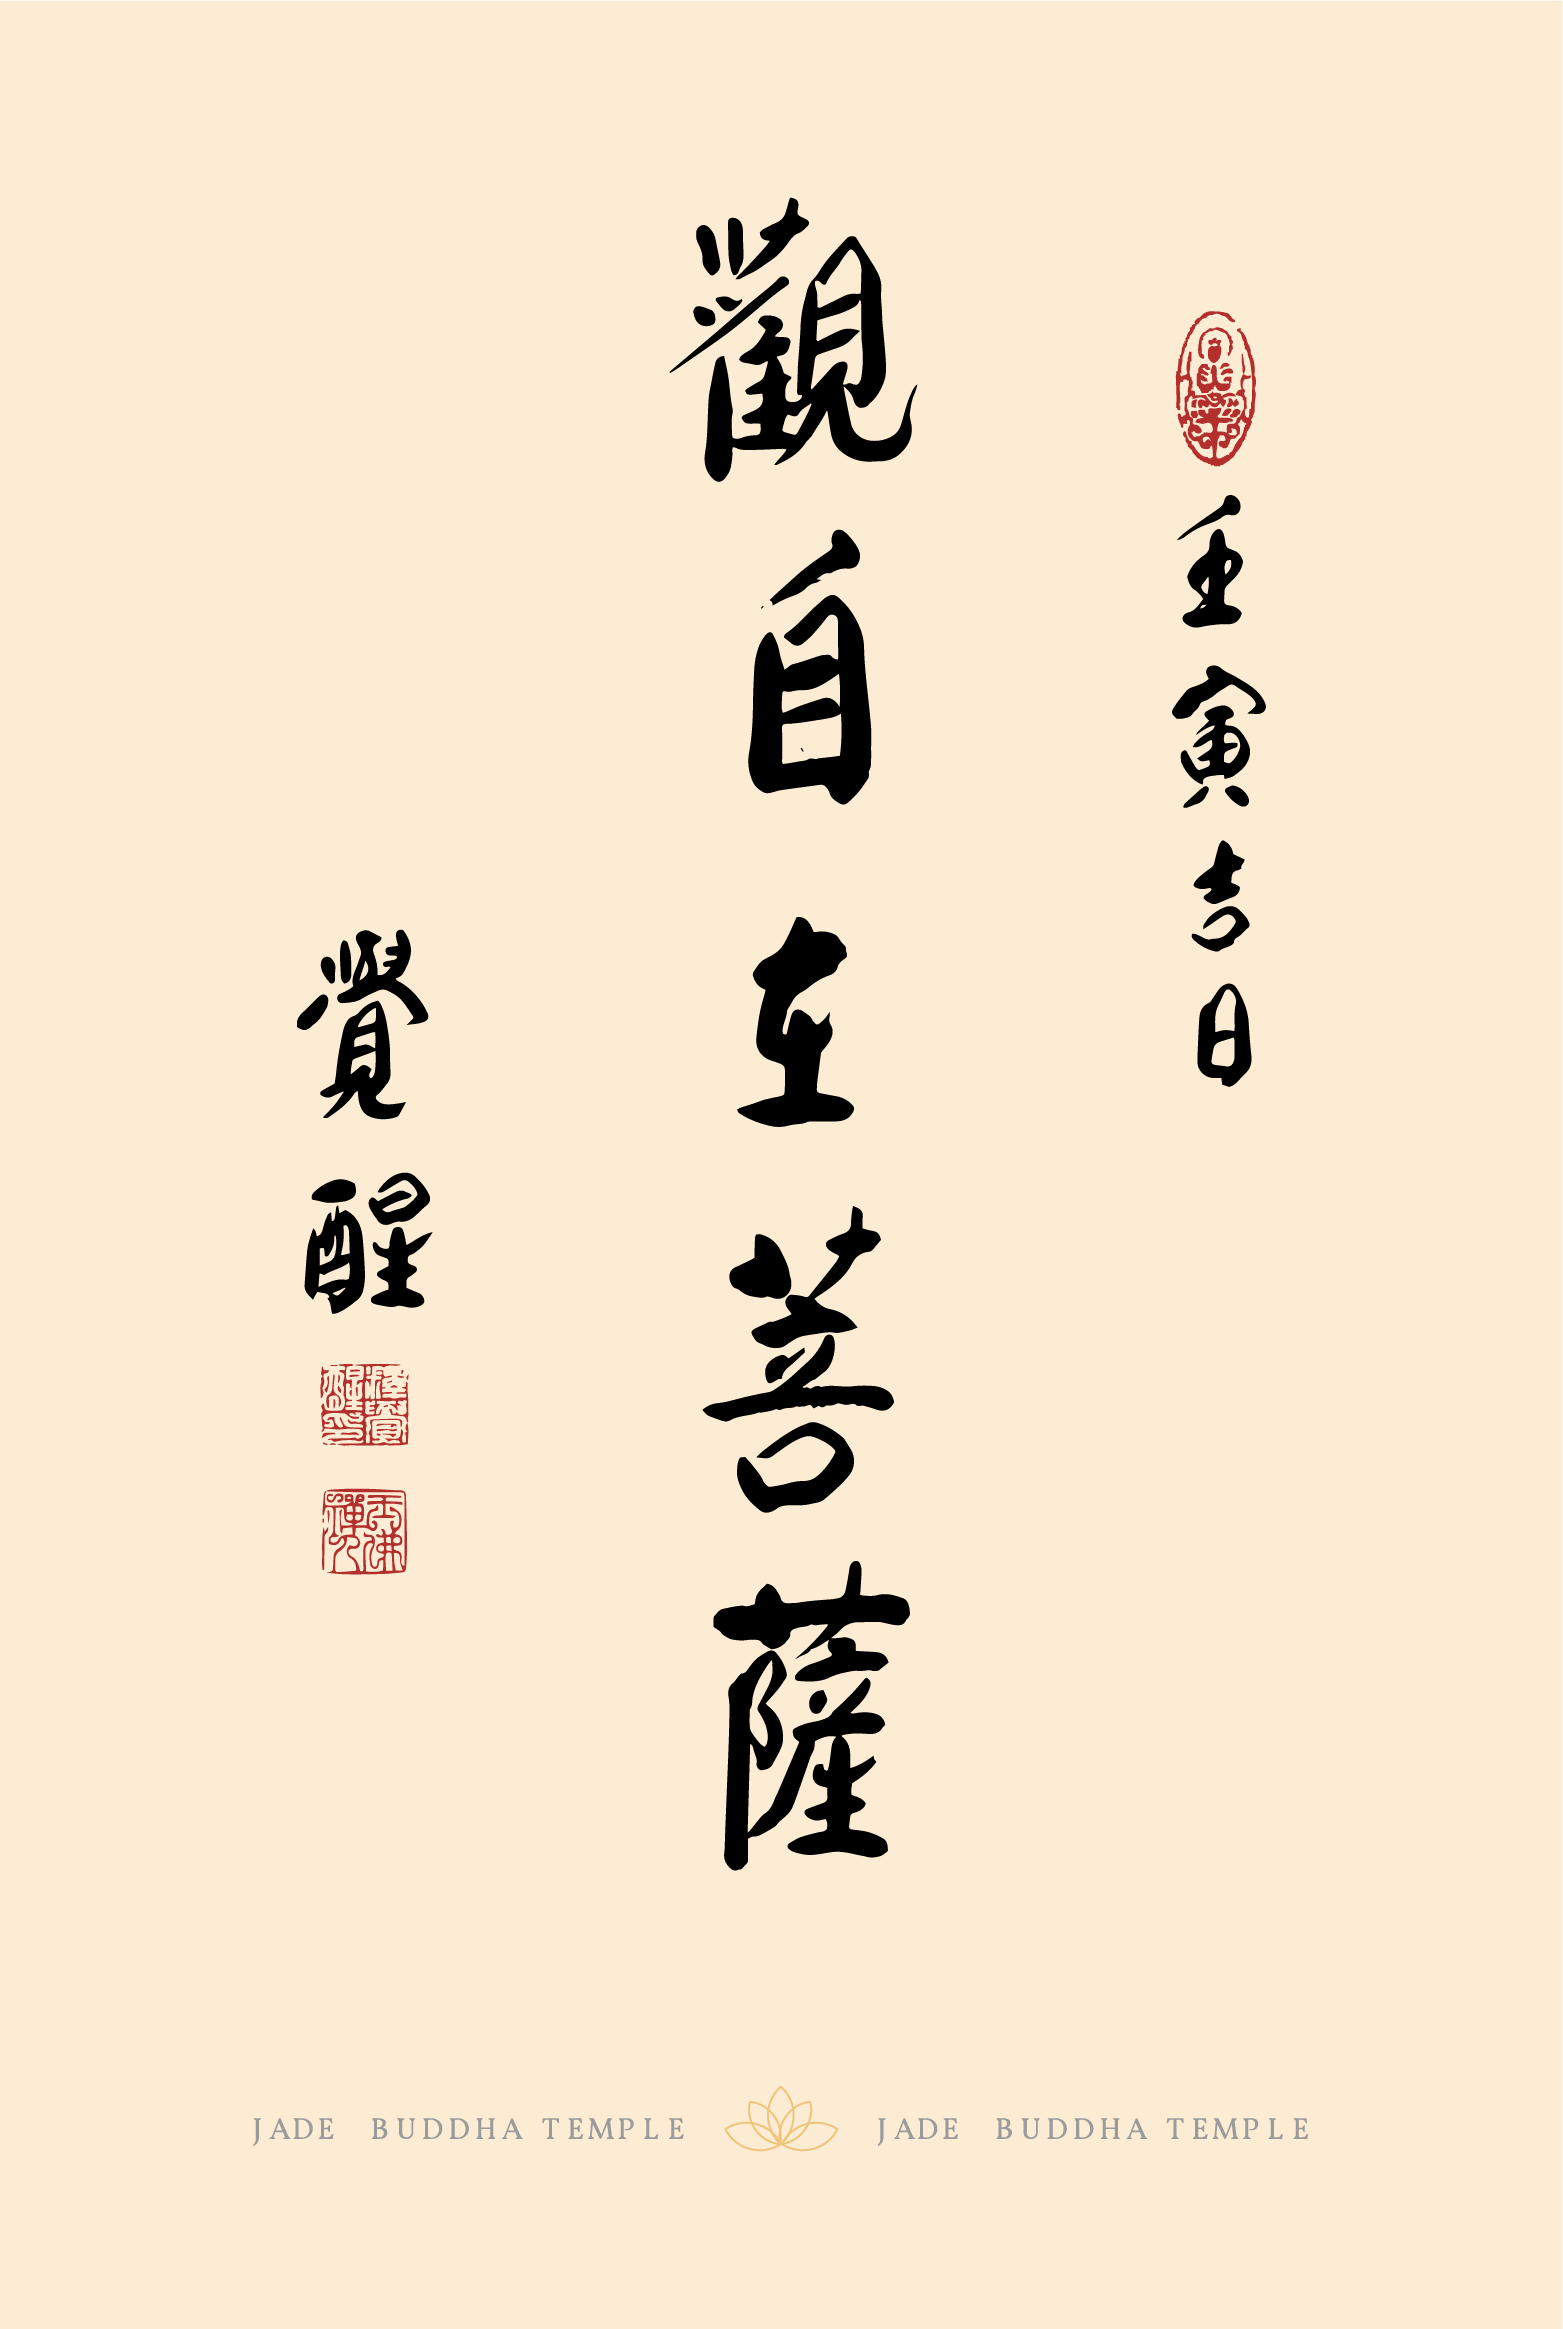 壬寅吉日
觀自在菩薩
覺醒
釋覺醒印
玉佛禪寺
JADE BUDDHA TEMPLE JADE BUDDHA TEMPLE